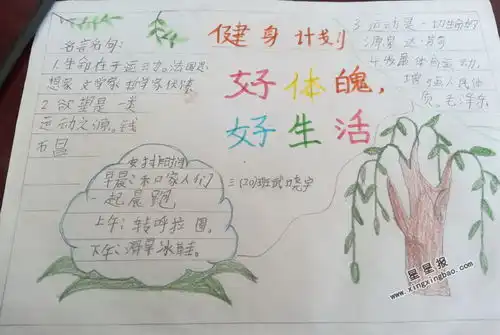 健身计划
好体魄,
好生活
名言名句:
1.生命在于运动。法国思
想家 文学家 哲学家 伏尔
2 欲望是一类
运动之源。钱
石昌
3 运动是一切生命的
源泉 达·芬奇
4.发展体育运动,
增强人民体
质。毛泽东
三(20)班武晓宇
安排时间
早晨:和家人们
一起晨跑
上午:转呼拉圈,
下午:滑旱冰鞋。
星星报
www.xingxingbao.com